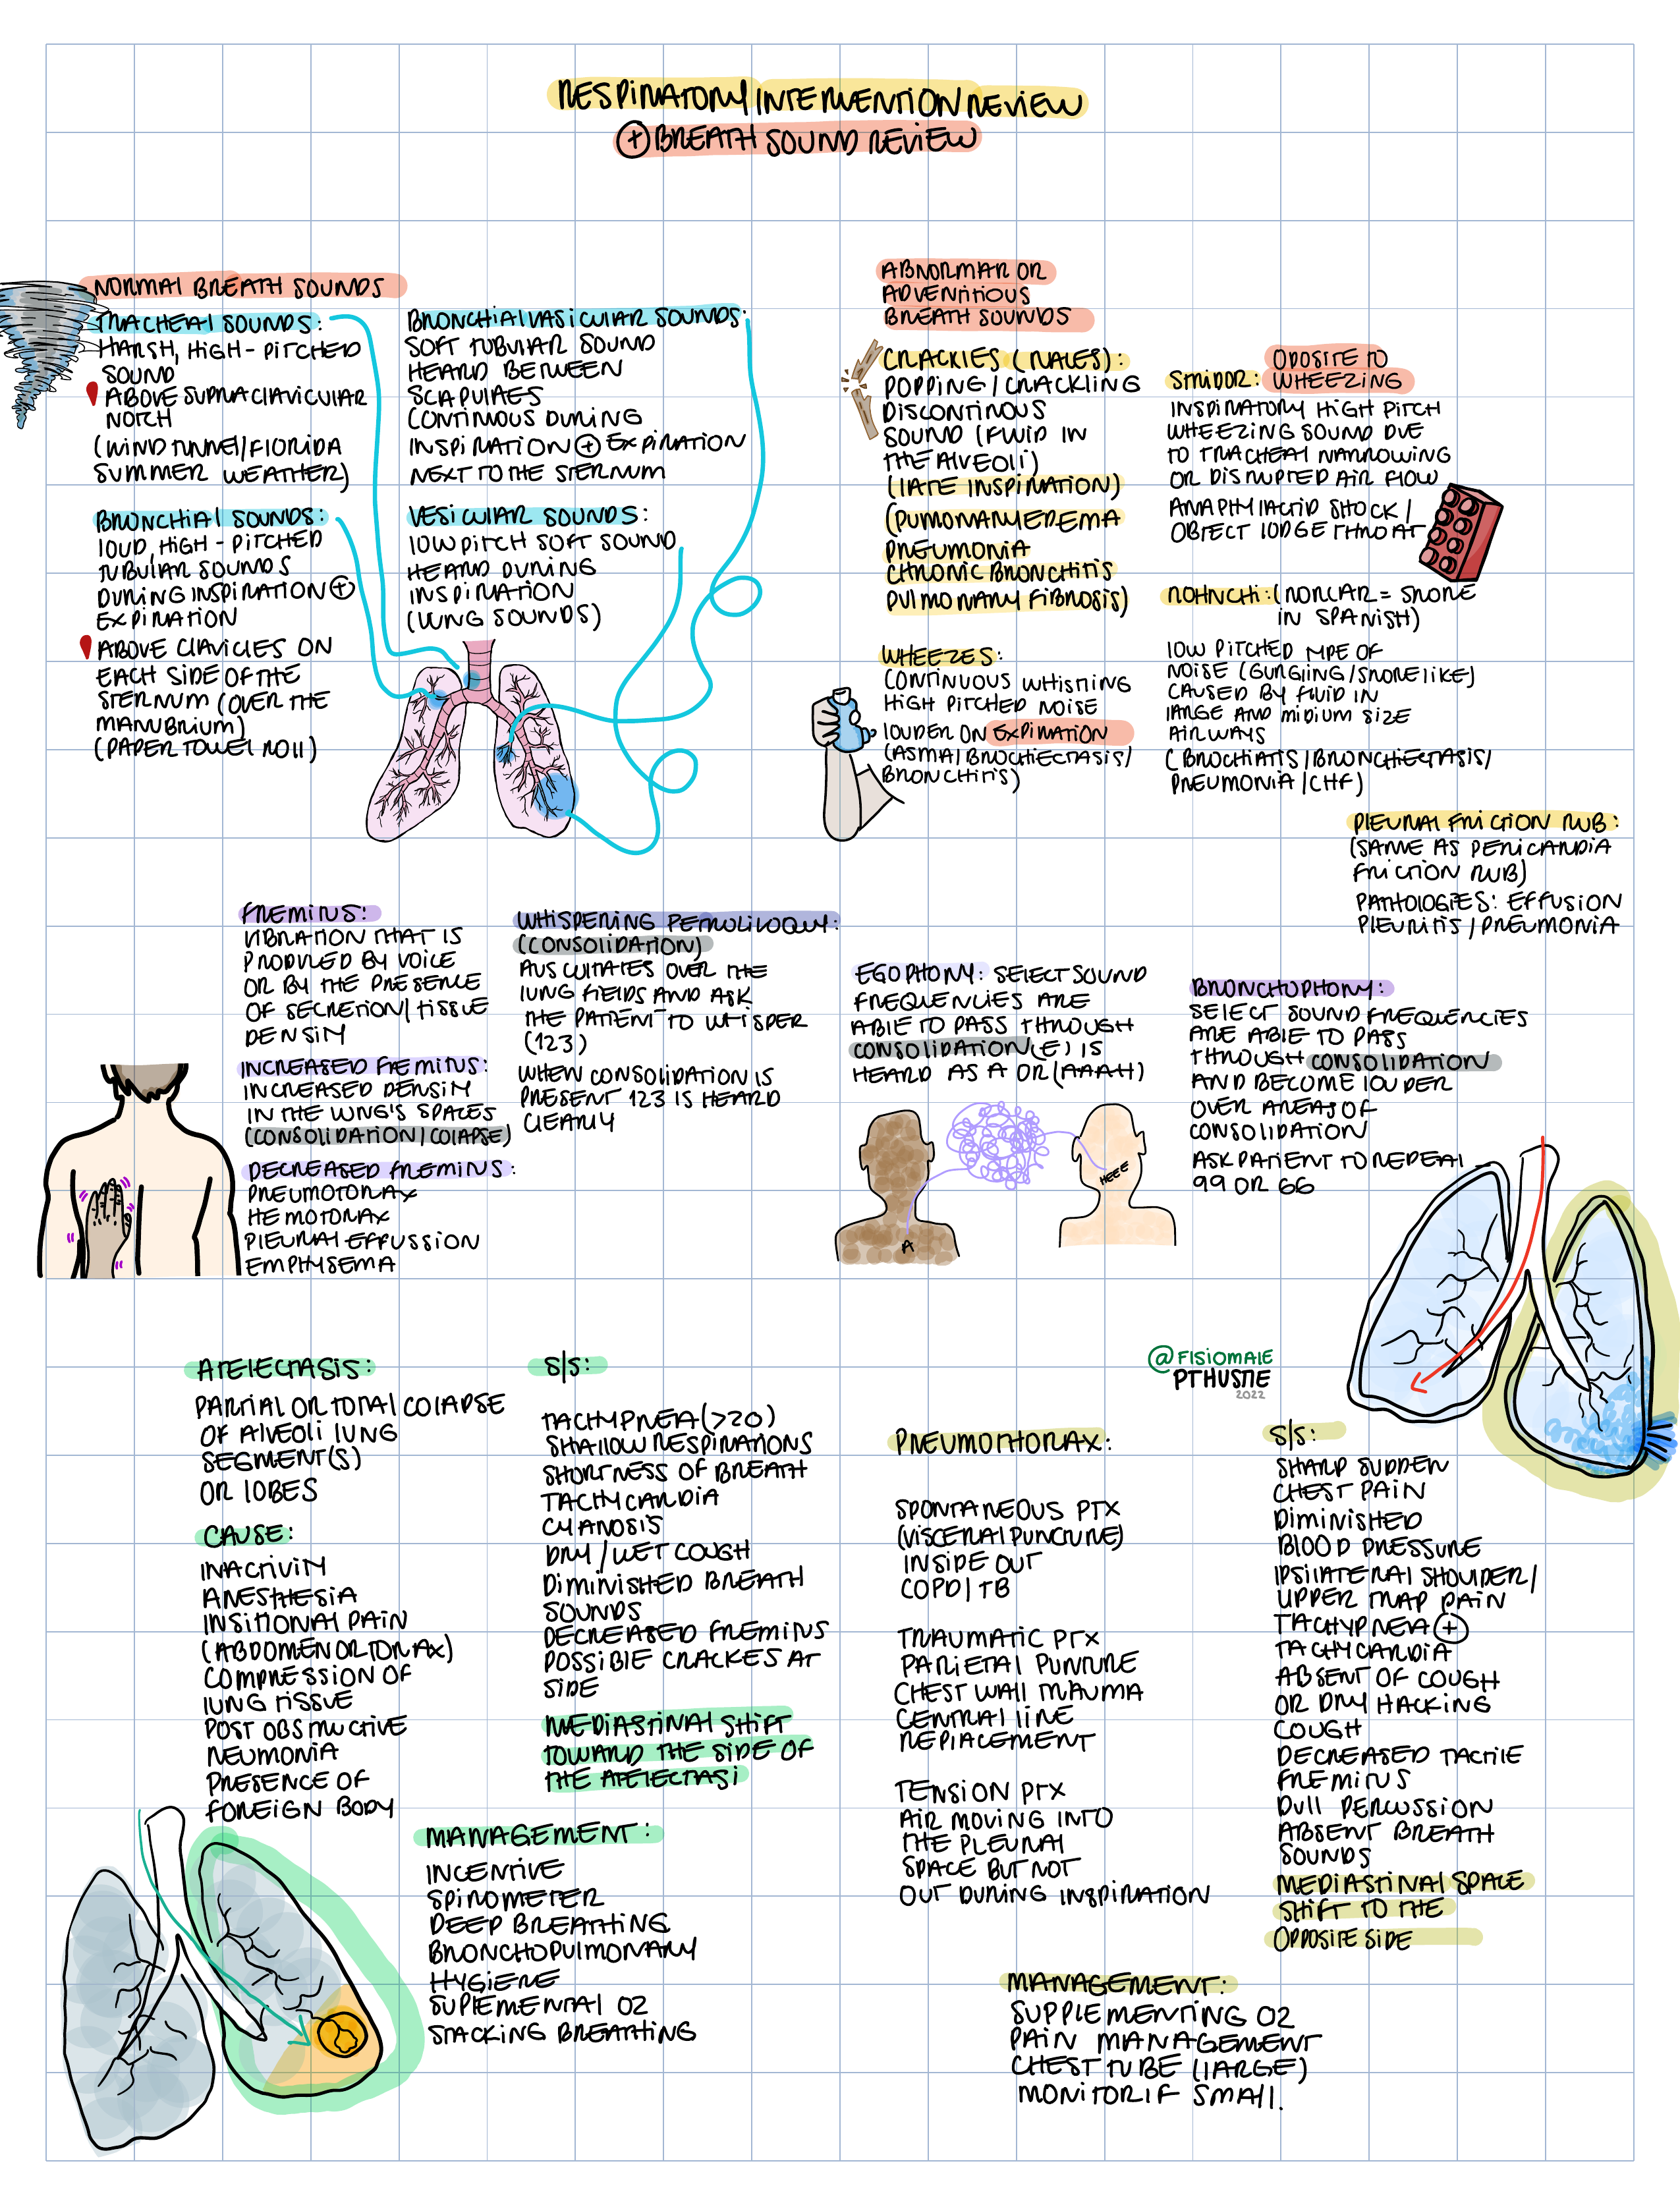 RESPIRATORY INTERVENTION REVIEW
+ BREATH SOUND REVIEW
NORMAL BREATH SOUNDS
TRACHEAL SOUNDS:
HARSH, HIGH-PITCHED
SOUND
ABOVE SUPRACLAVICULAR
NOTCH
(WIND TUNNEL/FLORIDA
SUMMER WEATHER)
BRONCHIAL SOUNDS:
LOUD, HIGH-PITCHED
TUBULAR SOUNDS
DURING INSPIRATION +
EXPIRATION
ABOVE CLAVICLES ON
EACH SIDE OF THE
STERNUM (OVER THE
MANUBRIUM)
(PAPER TOWEL ROLL)
BRONCHIALVASICULAR SOUNDS:
SOFT TUBULAR SOUND
HEARD BETWEEN
SCAPULAES
CONTINOUS DURING
INSPIRATION + EXPIRATION
NEXT TO THE STERNUM
VESICULAR SOUNDS:
LOW PITCH SOFT SOUND
HEARD DURING
INSPIRATION
(LUNG SOUNDS)
ABNORMAR OR
ADVENITIOUS
BREATH SOUNDS
CRACKLES (RALES):
POPPING/CRACKLING
DISCONTINOUS
SOUND (FLUID IN
THE ALVEOLI)
(LATE INSPIRATION)
(PUMONARY EDEMA
PNEUMONIA
CHRONIC BRONCHITIS
PULMONARY FIBROSIS)
WHEEZES:
CONTINUOUS WHISTING
HIGH PITCHED NOISE
LOUDER ON EXPIRATION
(ASMA/BROCHIECTASIS/
BRONCHITIS)
STRIDOR: OPOSITE TO
WHEEZING
INSPIRATORY HIGH PITCH
WHEEZING SOUND DUE
TO TRACHEAL NARROWING
OR DISRUPTED AIR FLOW
ANAPHYLACTIC SHOCK/
OBJECT LODGE THROAT
ROHNCHI: (RONCAR = SNORE
IN SPANISH)
LOW PITCHED TYPE OF
NOISE (GURGLING/SNORELIKE)
CAUSED BY FLUID IN
LARGE AND MIDIUM SIZE
AIRWAYS
(BROCHIATIS/BRONCHIECTASIS/
PNEUMONIA/CHF)
PLEURAL FRICTION RUB:
(SAME AS PERICARDIA
FRICTION RUB)
PATHOLOGIES: EFFUSION
PLEURITIS/PNEUMONIA
FREMITUS:
VIBRATION THAT IS
PRODUCED BY VOICE
OR BY THE PRESENCE
OF SECRETION/TISSUE
DENSITY
INCREASED FREMITUS:
INCREASED DENSITY
IN THE LUNG'S SPACES
(CONSOLIDATION/COLAPSE)
DECREASED FREMITUS:
PNEUMOTORAX
HEMOTORAX
PLEURAL EFFUSSION
EMPHYSEMA
WHISPERING PETROLILOQUY:
(CONSOLIDATION)
AUSCULTATES OVER THE
LUNG FIELDS AND ASK
THE PATIENT TO WHISPER
(123)
WHEN CONSOLIDATION IS
PRESENT 123 IS HEARD
CLEARLY
EGOPHONY: SELECT SOUND
FREQUENCIES ARE
ABLE TO PASS THROUGH
CONSOLIDATION (E) IS
HEARD AS A OR (AAAH)
HEEE
A
BRONCHOPHONY:
SELECT SOUND FREQUENCIES
ARE ABLE TO PASS
THROUGH CONSOLIDATION
AND BECOME LOUDER
OVER AREAS OF
CONSOLIDATION
ASK PATIENT TO REPEAT
99 OR 66
@FISIOMALE
PTHUSTLE
2022
ATELECTASIS:
PARTIAL OR TOTAL COLAPSE
OF ALVEOLI LUNG
SEGMENT(S)
OR LOBES
CAUSE:
INACTIVITY
ANESTHESIA
INSITIONAL PAIN
(ABDOMEN OR TORAX)
COMPRESSION OF
LUNG TISSUE
POST OBSTRUCTIVE
NEUMONIA
PRESENCE OF
FOREIGN BODY
S/S:
TACHYPNEA (>20)
SHALLOW RESPIRATIONS
SHORTNESS OF BREATH
TACHYCARDIA
CYANOSIS
DRY/WET COUGH
DIMINISHED BREATH
SOUNDS
DECREASED FREMITUS
POSSIBLE CRACKES AT
SIDE
MEDIASTINAL SHIFT
TOWARD THE SIDE OF
THE ATELECTASI
MANAGEMENT:
INCENTIVE
SPIROMETER
DEEP BREATHING
BRONCHOPULMONARY
HYGIENE
SUPLEMENTAL O2
STACKING BREATHING
PNEUMOTHORAX:
SPONTANEOUS PTX
(VISCERAL PUNCTURE)
INSIDE OUT
COPD/TB
TRAUMATIC PTX
PARIETAL PUNTURE
CHEST WALL TRAUMA
CENTRAL LINE
REPLACEMENT
TENSION PTX
AIR MOVING INTO
THE PLEURAL
SPACE BUT NOT
OUT DURING INSPIRATION
S/S:
SHARP SUDDEN
CHEST PAIN
DIMINISHED
BLOOD PRESSURE
IPSILATERAL SHOULDER/
UPPER TRAP PAIN
TACHYPNEA +
TACHYCARDIA
ABSENT OF COUGH
OR DRY HACKING
COUGH
DECREASED TACTILE
FREMITUS
DULL PERCUSSION
ABSENT BREATH
SOUNDS
MEDIASTINAL SPACE
SHIFT TO THE
OPPOSITE SIDE
MANAGEMENT:
SUPPLEMENTING O2
PAIN MANAGEMENT
CHEST TUBE (LARGE)
MONITOR IF SMALL.